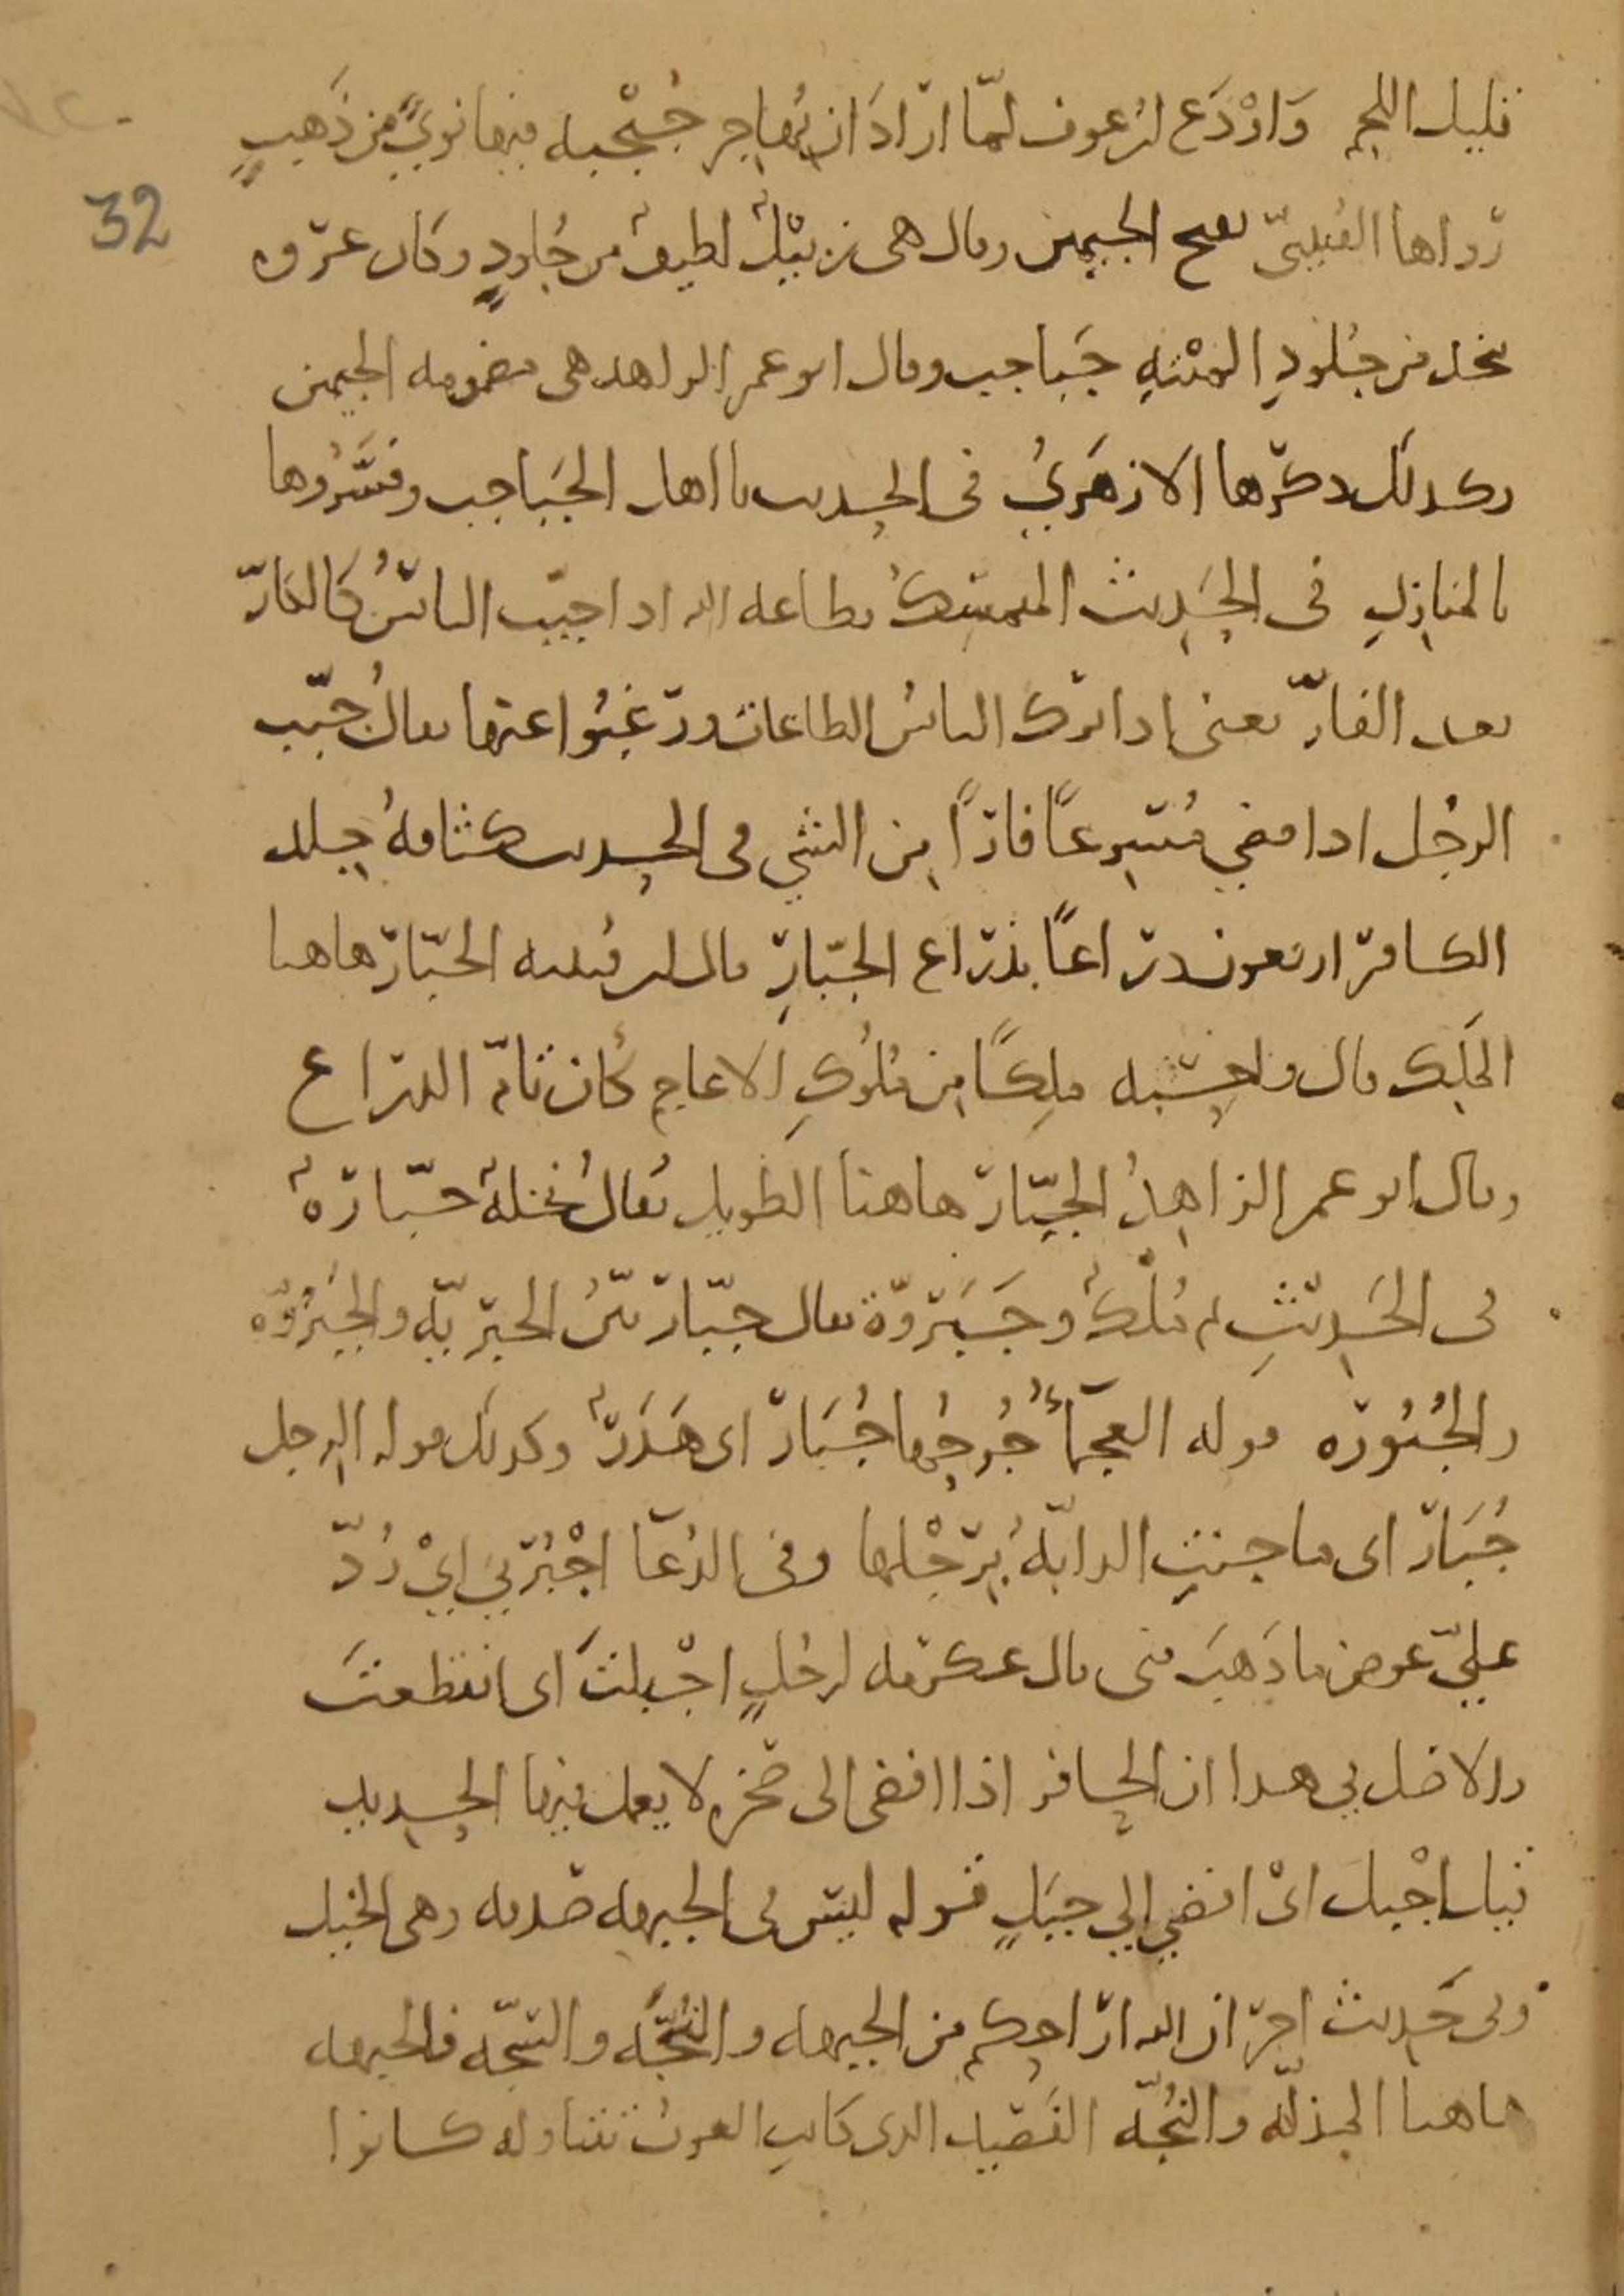 قليل اللحم وَاوْدَع ابن عوف لمّا ارَادَ ان يُهاجِر جُبْجُبه فيها نويً من ذَهبٍ
32
رواها القُتيبيّ بفتح الجيمين وقال هي زبيْلٌ لطيفٌ من جُلودٍ وكان غيره
يتخذ من جُلودِ الميْتَهِ جَباجب وقال ابو عمر الزاهد هي مضمومه الجيمين
وكذلك ذكرها الازهَريُ في الحديث يا اهل الجَباجب وفَسَّرُوها
بالمنازِلِ في الحَدِيث المتمسِّكُ بطاعه الله اذا جبّب الناسُ كَالكارّ
بعد الفارّ يعني اذا ترك الناسُ الطاعات ورَغِبُوا عنها يقالُ جبّب
الرجُل اذا مضي مُسِرعًا فارًا مِن الشي في الحديث كثافهُ جِلد
الكافر اربعون ذراعًا بذراع الجبّارِ قال ابن قتيبه الجبّار هاهنا
الملِك قال واحسِبه ملِكًا مِن مُلُوكِ الاعاجم كُان تامّ الذراع
وقال ابو عمر الزاهِدُ الجبّار هاهنا الطويل يُقالُ نخلهٌ جبّارهٌ
في الحَدِيثِ ثم مُلْكٌ وجَبَروّة يقال جبّار بيّنُ الجبريّه والجَبَرُوّه
والجُبُورَه قوله العجمآءُ جُرحُها جُبَار اي هَدَرٌ وكذلك قوله الرجل
جُبَار اي ما جنتِ الدابّهُ بِرجْلها وفي الدُعَآ اجْبُرنِي ايْ رُدّ
عليّ عوض ما ذَهبَ مني قال عكرمه لرجُلٍ اجْبلتَ اي انقطعتَ
والاصل في هذا ان الحافر اذا افضي الى صخره لا يعمل فيها الحديد
قيل اجْبل ايْ افضي الي جبَلٍ قوله ليس في الجبهه صدقه وهي الخيل
وفي حَديث اخر ان الله اراحكم من الجبهه والبُجَّه والسجّه فالجبهه
هاهنا المذلّه والبُجّه الفَصِيد الذي كانتِ العربُ تتناوله كانوا